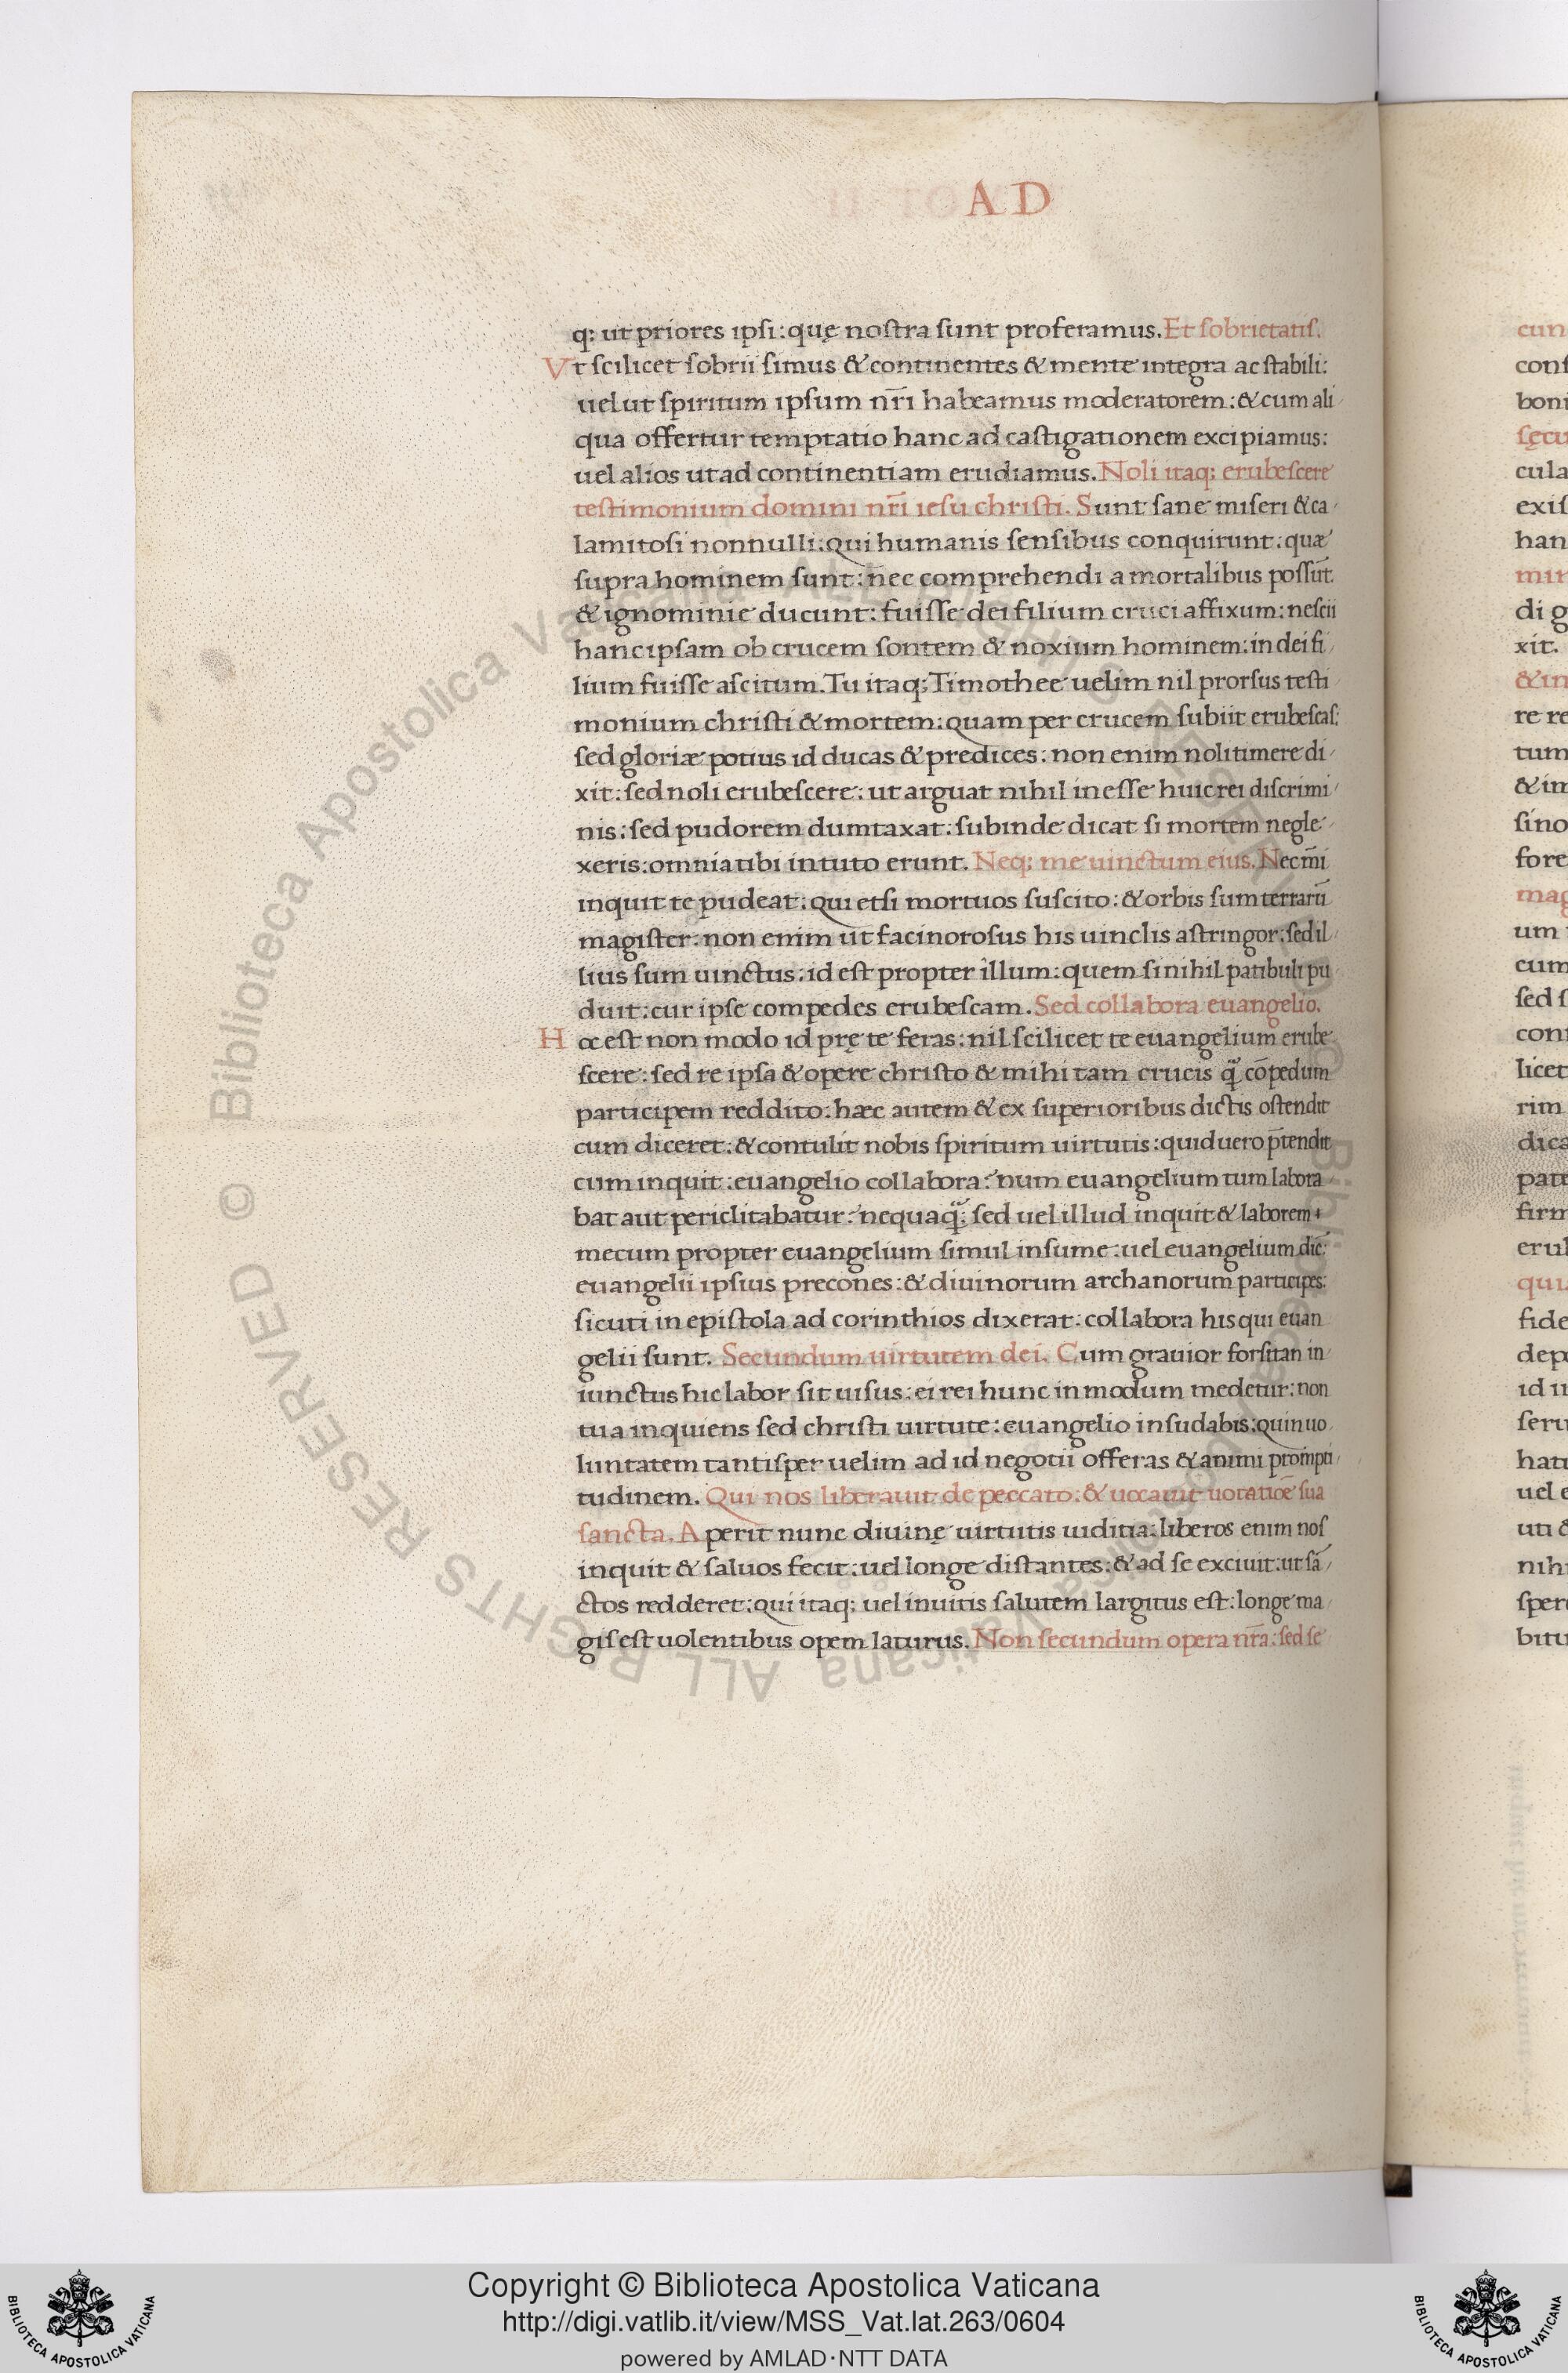 AD
q: ut priores ipsi: quę nostra sunt proferamus. Et sobrietatis.
Vt scilicet sobrii simus & continentes & mente integra ac stabili:
uel ut spiritum ipsum nr̄i habeamus moderatorem: & cum ali
qua offertur temptatio hanc ad castigationem excipiamus:
uel alios ut ad continentiam erudiamus. Noli itaq; erubescere
testimonium domini nr̄i iesu christi. Sunt sane miseri & ca
lamitosi nonnulli: qui humanis sensibus conquirunt: quæ
supra hominem sunt: nec comprehendi a mortalibus possūt.
& ignominie ducunt: fuisse dei filium cruci affixum: nescii
hanc ipsam ob crucem sontem & noxium hominem: in dei fi
lium fuisse ascitum. Tu itaq; Timothee uelim nil prorsus testi
monium christi & mortem: quam per crucem subiit erubescas:
sed gloriæ potius id ducas & predices: non enim noli timere di
xit: sed noli erubescere: ut arguat nihil inesse huic rei discrimi
nis: sed pudorem dumtaxat: subinde dicat si mortem negle
xeris: omnia tibi in tuto erunt. Neq; me uinctum eius. Nec mī
inquit te pudeat: qui etsi mortuos suscito: & orbis sum terrarū
magister: non enim ut facinorosus his uinclis astringor: sed il
lius sum uinctus: id est propter illum: quem si nihil patibuli pu
duit: cur ipse compedes erubescam. Sed collabora euangelio.
Hoc est non modo id prę te feras: nil scilicet te euangelium erube
scere: sed re ipsa & opere christo & mihi tam crucis q̃ cōpedum
participem reddito: hæc autem & ex superioribus dictis ostendit
cum diceret: & contulit nobis spiritum uirtutis: quid uero p̄tendit
cum inquit: euangelio collabora: num euangelium tum labora
bat aut periclitabatur: nequaq̃: sed uel illud inquit & laborem
mecum propter euangelium simul insume: uel euangelium dic̄:
euangelii ipsius precones: & diuinorum archanorum participes:
sicuti in epistola ad corinthios dixerat: collabora his qui euan
gelii sunt. Secundum uirtutem dei. Cum grauior forsitan in
iunctus hic labor sit uisus: ei rei hunc in modum medetur: non
tua inquiens sed christi uirtute: euangelio insudabis: quin uo
luntatem tantisper uelim ad id negotii offeras & animi prompti
tudinem. Qui nos liberauit de peccato: & uocauit uocatiōe sua
sancta. Aperit nunc diuinę uirtutis iuditia: liberos enim nos
inquit & saluos fecit: uel longe distantes: & ad se exciuit: ut sā
ctos redderet: qui itaq; uel inuitis salutem largitus est: longe ma
gis est uolentibus opem laturus. Non secundum opera nr̄a: sed se
cun
boni
cula
han
di g
xit.
&in
re re
tum
sino
fore
mag
um
cum
licet
rim
dica
pate
firm
erub
qui
fide
depo
Copyright © Biblioteca Apostolica Vaticana
http://digi.vatlib.it/view/MSS_Vat.lat.263/0604
powered by AMLAD·NTT DATA
BIBLIOTECA APOSTOLICA VATICANA
BIBLIOTECA APOSTOLICA VATICANA